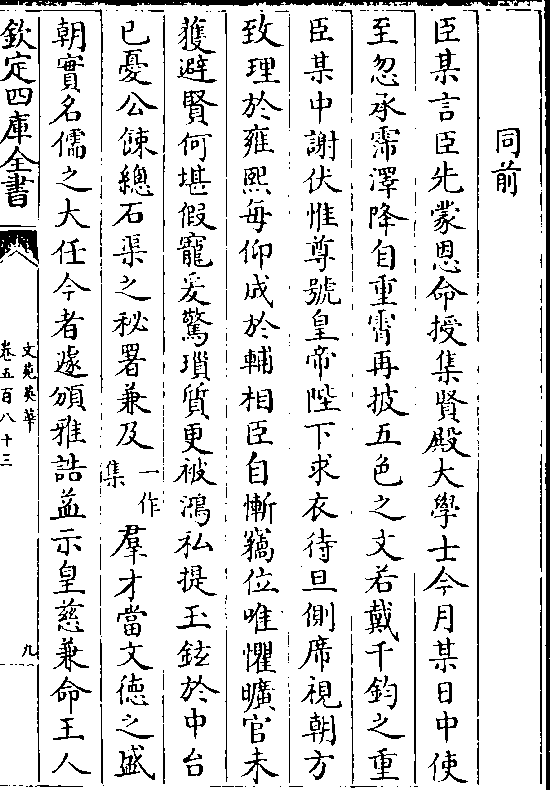 同前
臣某言臣先蒙恩命授集賢殿大學士今月某日中使
至忽承霈澤降自重霄再披五色之文若戴千鈞之重
臣某中謝伏惟尊號皇帝陛下求衣待旦側席視朝方
致理於雍熙每仰成於輔相臣自慚竊位唯懼曠官未
獲避賢何堪假寵爰驚瑣質更被鴻私提玉鉉於中台
已憂公餗總石渠之秘署兼及一作集羣才當文德之盛
朝實名儒之大任今者遽頒雅誥益示皇慈兼命王人
欽定四庫全書
文苑英華
卷五百八十三
九